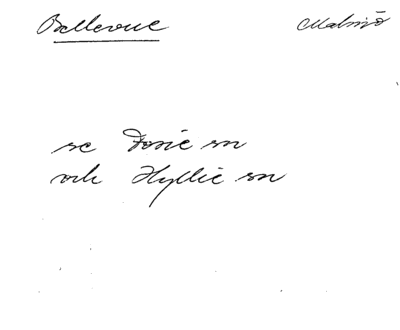 Bellevue Malmö
se Fosie sn
och Hyllie sn